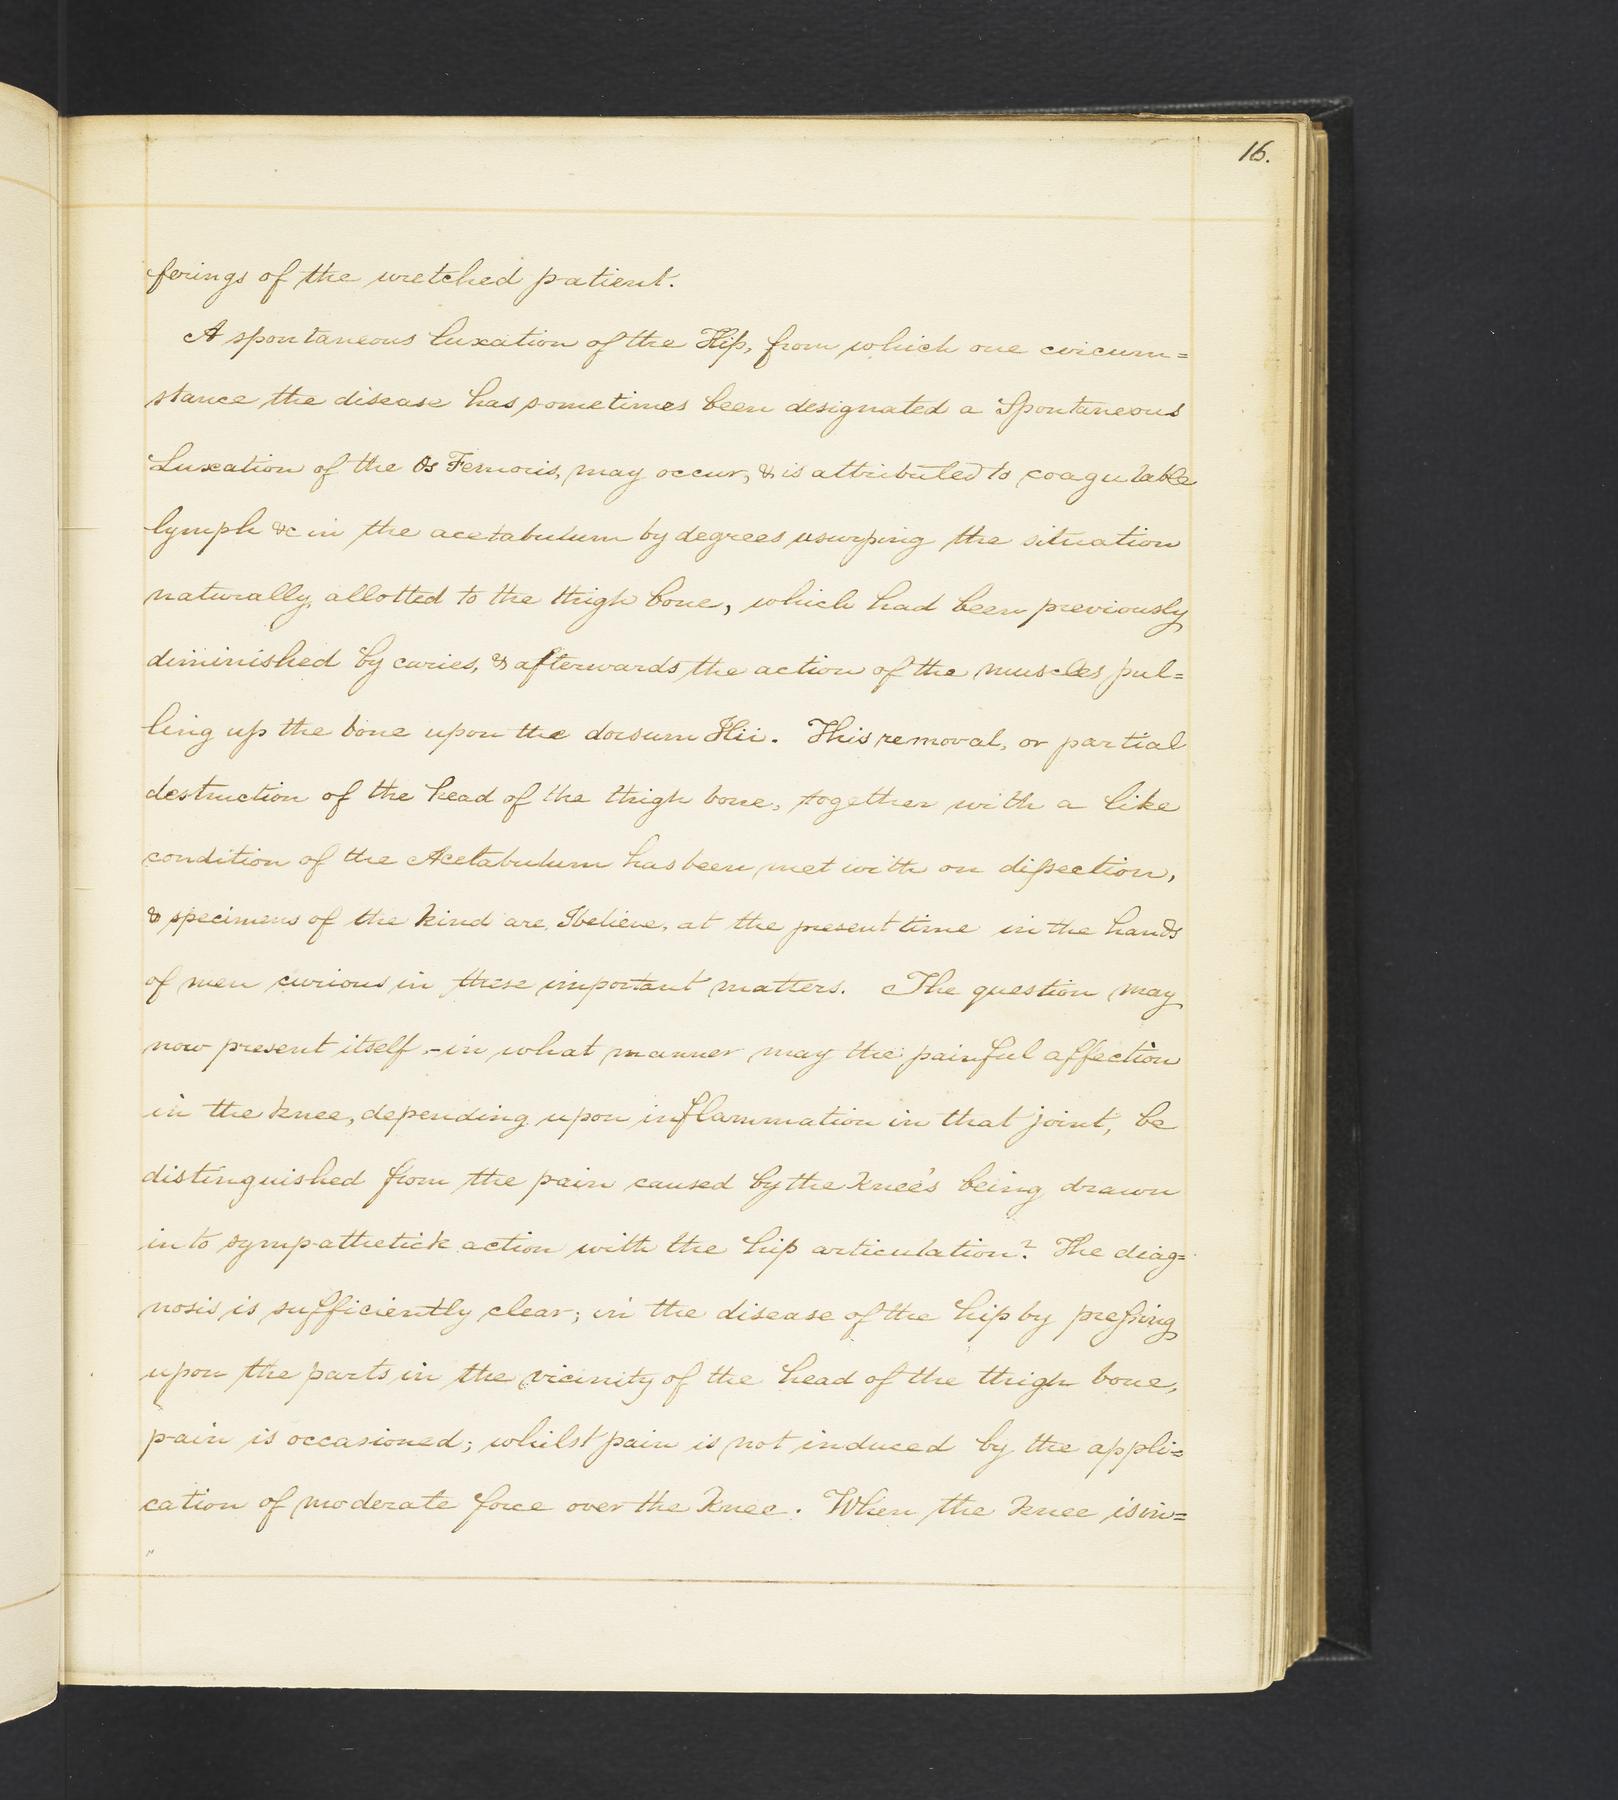 16.
ferings of the wretched patient.
A spontaneous luxation of the Hip, from which one circum=
stance the disease has sometimes been designated a Spontaneous
Luxation of the Os Femoris, may occur, & is attributed to coagulable
lymph &c in the acetabulum by degrees usurping the situation
naturally allotted to the thigh bone, which had been previously
diminished by caries, & afterwards the action of the muscles pul=
ling up the bone upon the dorsum Ilii. This removal, or partial
destruction of the head of the thigh bone, together with a like
condition of the Acetabulum has been met with on dissection,
& specimens of the kind are, I believe, at the present time in the hands
of men curious in these important matters. The question may
now present itself,-in what manner may the painful affection
in the knee, depending upon inflammation in that joint, be
distinguished from the pain caused by the Knee's being drawn
into sympathetick action with the hip articulation? The diag=
nosis is sufficiently clear; in the disease of the hip by pressing
upon the parts in the vicinity of the head of the thigh bone,
pain is occasioned; whilst pain is not induced by the appli=
cation of moderate force over the Knee. When the Knee is in=
"